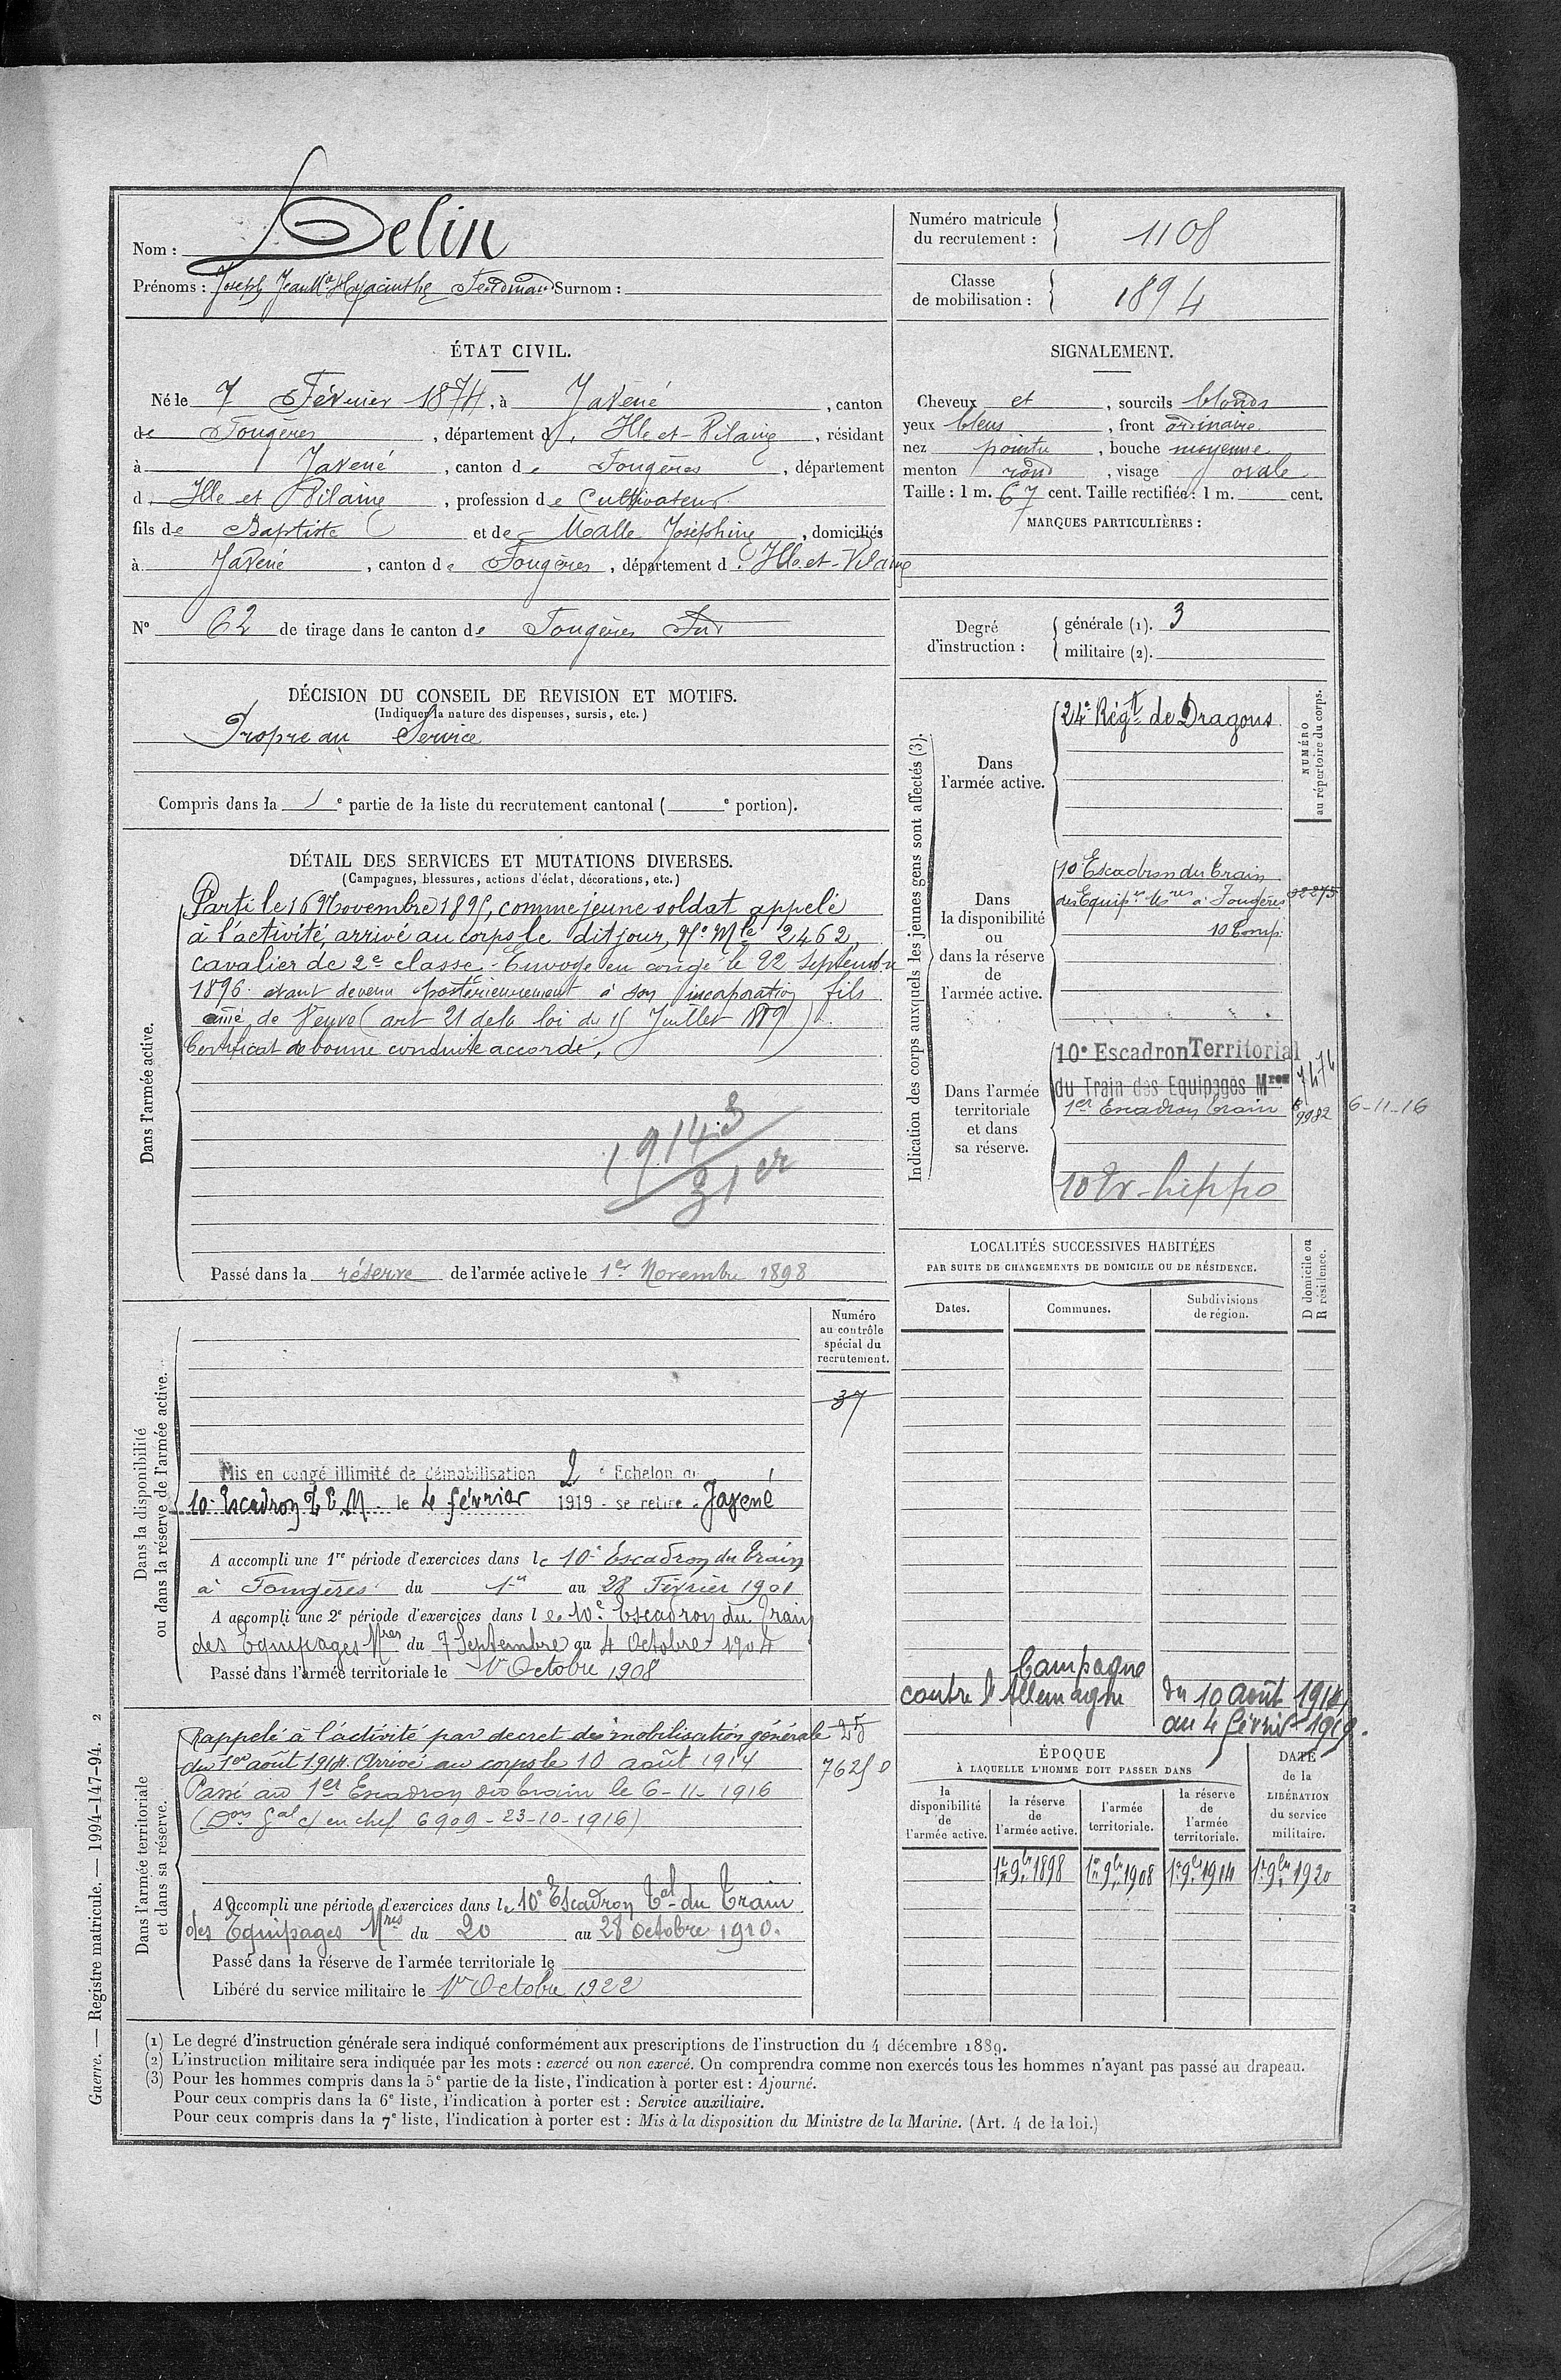 Nom : Delin
Prénoms : Joseph Jean Mie Hyacinthe Ferdinand Surnom :
Numéro matricule du recrutement : 1108
Classe de mobilisation : 1894
ÉTAT CIVIL.
Né le 7 Février 1874, à Javené, canton
de Fougères, département d'Ille-et-Vilaine, résidant
à Javené, canton de Fougères, département
d'Ille et Vilaine, profession de Cultivateur
fils de Baptiste et de Malle Joséphine, domiciliés
à Javené, canton de Fougères, département d'Ille-et-Vilaine
N° 62 de tirage dans le canton de Fougères Sud
SIGNALEMENT.
Cheveux et, sourcils blonds
yeux bleus, front ordinaire
nez pointu, bouche moyenne
menton rond, visage ovale
Taille : 1 m. 67 cent. Taille rectifiée : 1 m. cent.
MARQUES PARTICULIÈRES :
Degré d'instruction : générale (1). 3
militaire (2).
DÉCISION DU CONSEIL DE REVISION ET MOTIFS.
(Indiquer la nature des dispenses, sursis, etc.)
Propre au Service
Compris dans la 1e partie de la liste du recrutement cantonal ( e portion).
DÉTAIL DES SERVICES ET MUTATIONS DIVERSES.
(Campagnes, blessures, actions d'éclat, décorations, etc.)
Dans l'armée active.
Parti le 16 Novembre 1895, comme jeune soldat appelé
à l'activité, arrivé au corps le dit jour, N° Mle 2462,
cavalier de 2e classe. Envoyé en congé le 22 Septembre
1896. étant devenu postérieurement à son incorporation fils
aîné de Veuve (art 21 de la loi du 15 Juillet 1889)
Certificat de bonne conduite accordé.
1914.3
31 er
Passé dans la réserve de l'armée active le 1er Novembre 1898
Indication des corps auxquels les jeunes gens sont affectés (3).
NUMÉRO au répertoire du corps.
Dans l'armée active.
24e Régt de Dragons
Dans la disponibilité ou dans la réserve de l'armée active.
10e Escadron du Train
des Equipes Mres à Fougères 32275
10 Comp.
Dans l'armée territoriale et dans sa réserve.
10e Escadron Territorial
du Train des Equipages Mres 7474
1er Escadron train 9982 6-11-16
10 Tr-hippo
LOCALITÉS SUCCESSIVES HABITÉES
PAR SUITE DE CHANGEMENTS DE DOMICILE OU DE RÉSIDENCE.
Dates. Communes. Subdivisions de région. D domicile ou R résidence.
Campagne
contre l'Allemagne du 10 août 1914
au 4 février 1919.
Dans la disponibilité
ou dans la réserve de l'armée active.
Numéro au contrôle spécial du recrutement.
37
Mis en congé illimité de démobilisation 2e Echelon au
10e Escadron T E M le 4 février 1919 - se retire à Javené
A accompli une 1re période d'exercices dans le 10e Escadron du Train
à Fougères du 1er au 28 Février 1901
A accompli une 2e période d'exercices dans le 10e Escadron du Train
des Equipages Mres du 7 Septembre au 4 Octobre 1904
Passé dans l'armée territoriale le 1er Octobre 1908
Dans l'armée territoriale
et dans sa réserve.
Rappelé à l'activité par decret de mobilisation générale 25
du 1er août 1914. Arrivé au corps le 10 août 1914
Passé au 1er Escadron du train le 6-11-1916
(Don Gal ct en chef 6909-23-10-1916)
A accompli une période d'exercices dans le 10e Escadron Tal du Train
des Equipages Mres du 20 au 28 octobre 1910.
Passé dans la réserve de l'armée territoriale le
Libéré du service militaire le 1er Octobre 1922
ÉPOQUE
À LAQUELLE L'HOMME DOIT PASSER DANS
DATE de la LIBÉRATION du service militaire.
la disponibilité de l'armée active. la réserve de l'armée active. l'armée territoriale. la réserve de l'armée territoriale.
1er 9bre 1898 1er 9bre 1908 1er 9bre 1914 1er 9bre 1920
(1) Le degré d'instruction générale sera indiqué conformément aux prescriptions de l'instruction du 4 décembre 1889.
(2) L'instruction militaire sera indiquée par les mots : exercé ou non exercé. On comprendra comme non exercés tous les hommes n'ayant pas passé au drapeau.
(3) Pour les hommes compris dans la 5e partie de la liste, l'indication à porter est : Ajourné.
Pour ceux compris dans la 6e liste, l'indication à porter est : Service auxiliaire.
Pour ceux compris dans la 7e liste, l'indication à porter est : Mis à la disposition du Ministre de la Marine. (Art. 4 de la loi.)
Guerre. — Registre matricule. — 1994-147-94. 2